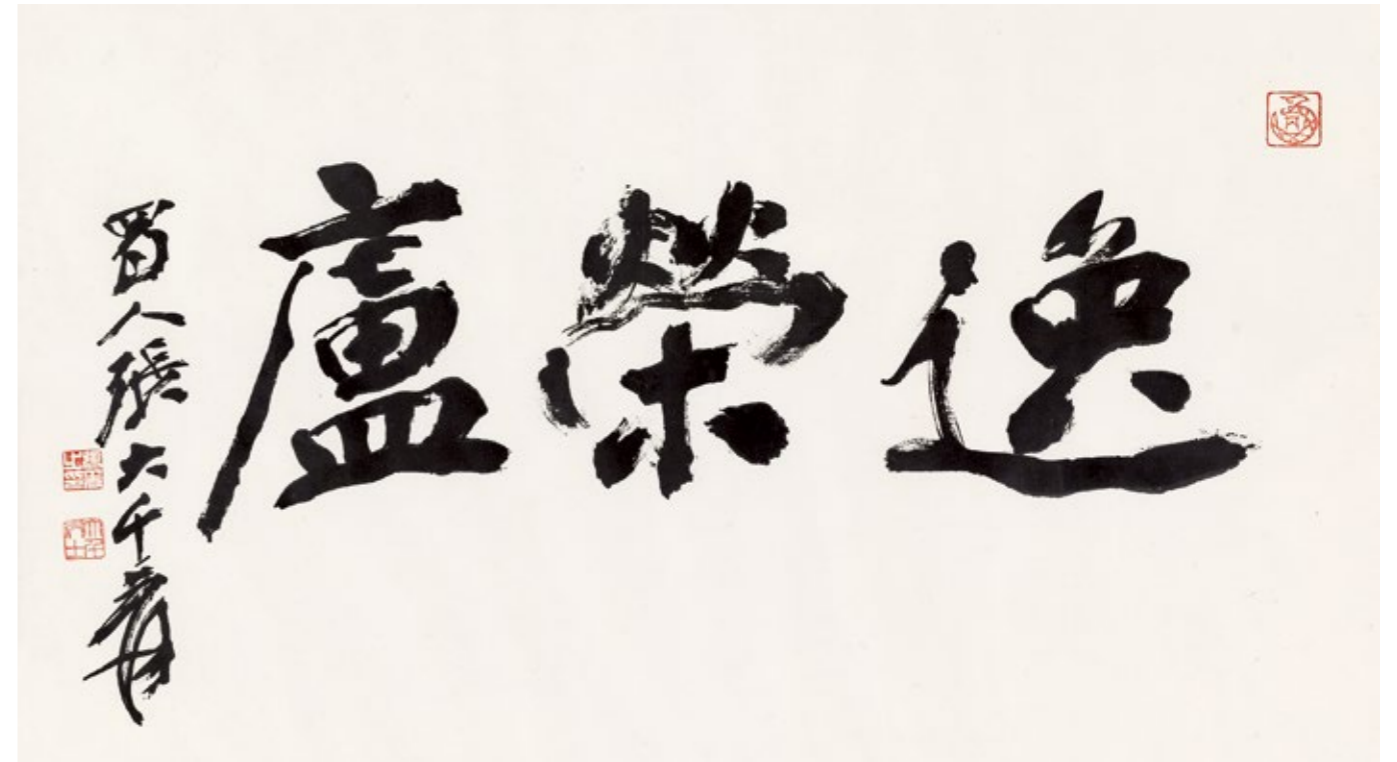 逸榮盧
蜀人張大千爰